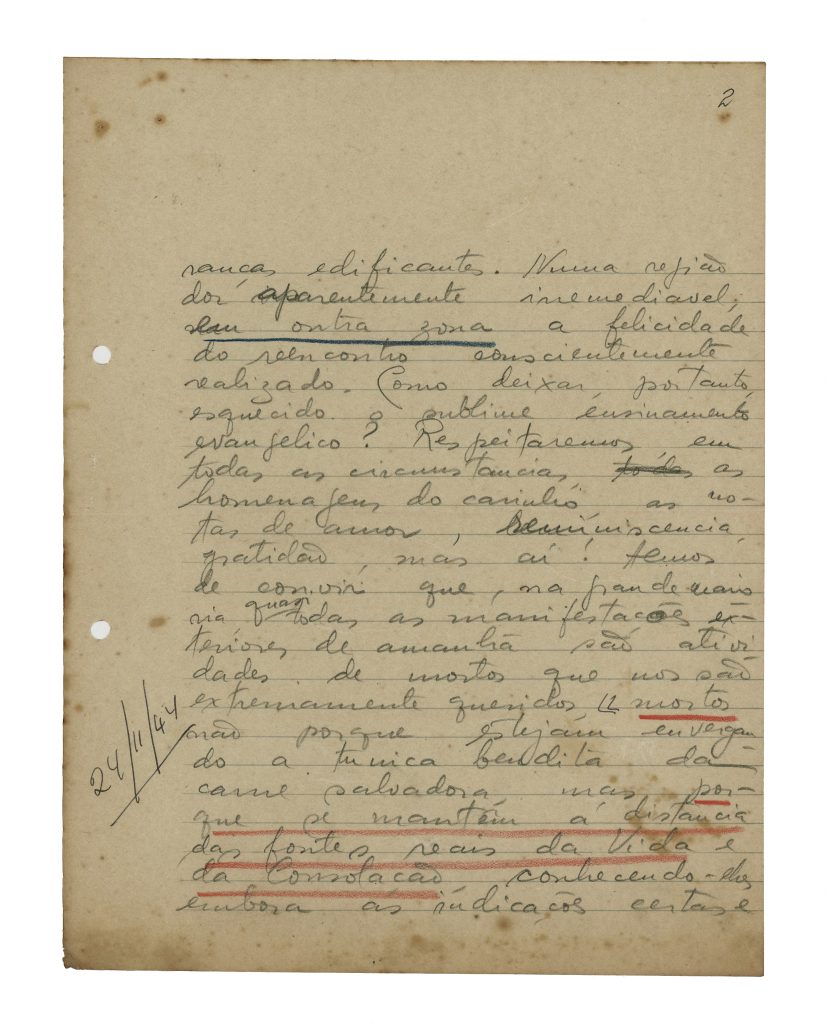 2
ranças edificantes. Numa região
dor aparentemente irremediavel;
em outra zona a felicidade
do reencontro conscientemente
realizado. Como deixar, portanto,
esquecido o sublime ensinamento
evangelico? Respeitaremos em
todas as circunstancias, todas as
homenagens do carinho, as no-
tas de amor, reminiscencia,
gratidão, mas ai! temos
de convir que, na grande maio
ria quasi todas as manifestações ex-
teriores de amanhã são ativi
dades de mortos que nos são
extremamente queridos, mortos
não porque estejam envergan
do a tunica bendita da
carne salvadora, mas por-
que se mantêm á distancia
das fontes reais da Vida e
da Consolação conhecendo-lhes
embora as indicações certas e
24/11/44